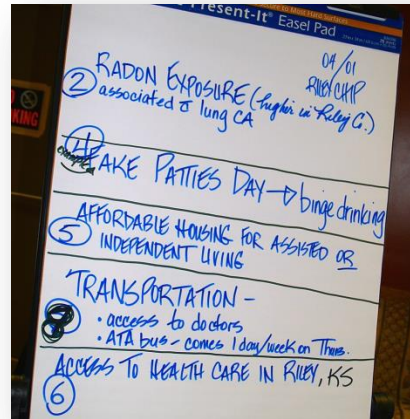 Present-It® Easel Pad
04/01
RILEY CHIP
② RADON EXPOSURE (higher in Riley Co.)
associated c̄ lung CA
④ FAKE PATTIES DAY → binge drinking
example
⑤ AFFORDABLE HOUSING FOR ASSISTED OR
INDEPENDENT LIVING
TRANSPORTATION -
• access to doctors
• ATA bus - comes 1 day/week on Thurs.
ACCESS TO HEALTH CARE IN RILEY, KS
⑥
KING